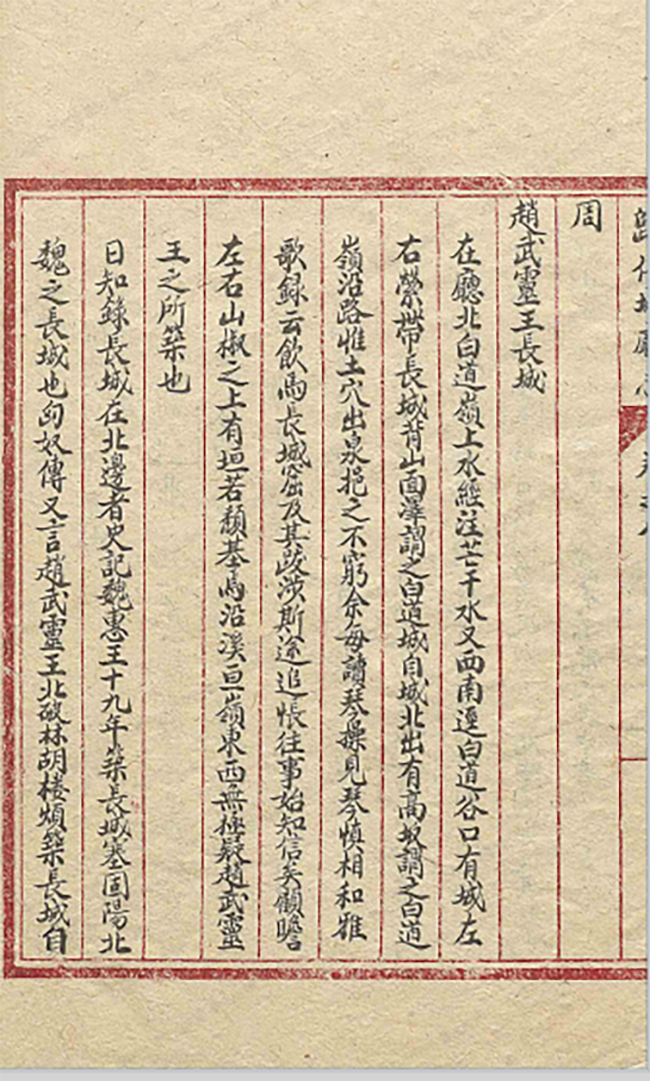 周
趙武靈王長城
在廳北白道嶺上水經注芒干水又西南逕白道谷口有城左
右縈帶長城背山面澤謂之白道城自城北出有高坂謂之白道
嶺沿路惟土穴出泉挹之不窮余每讀琴操見琴慎相和雅
歌録云飲馬長城窟及其跋涉斯途追悵往事始知信矣顧瞻
左右山椒之上有垣若頽基焉沿溪亘嶺東西無極疑趙武靈
王之所築也
日知錄長城在北邊者史記魏惠王十九年築長城塞固陽北
魏之長城也匈奴傳又言趙武靈王北破林胡樓煩築長城自